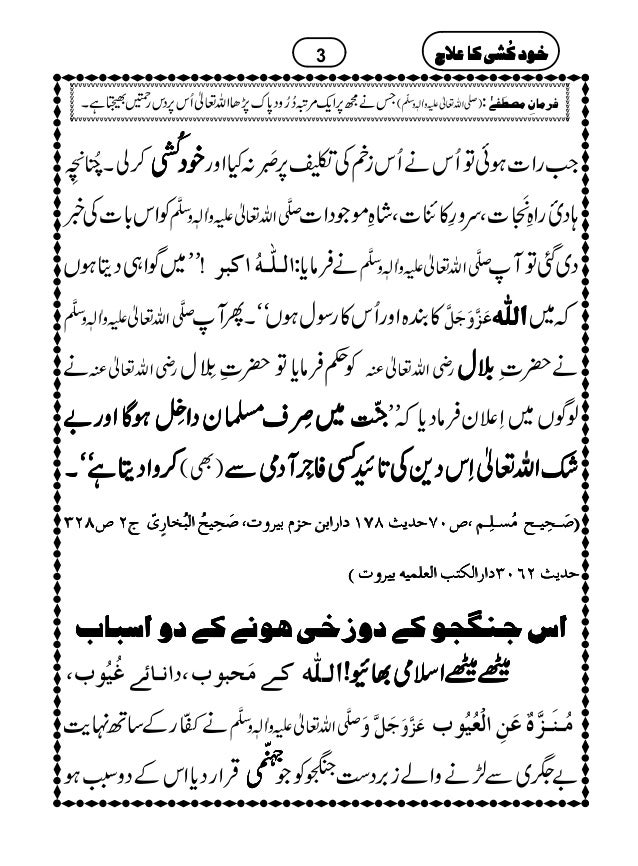 خود کُشی کا علاج
3
فرمانِ مصطفےٰ :(صلی اللہ تعالیٰ علیہ والہٖ وسلّم) جس نے مجھ پر ایک مرتبہ دُرُود پاک پڑھا اللہ تعالیٰ اُس پر دس رحمتیں بھیجتا ہے۔
جب رات ہوئی تو اُس نے اُس زخم کی تکلیف پر صَبر نہ کیا اور خود کُشی کر لی ۔ چُنانچِہ
ہادیٔ راہِ نَجات ،سرورِ کائنات، شاہِ موجودات صلَّی اللہ تعالیٰ علیہ والہٖ وسلَّم کو اس بات کی خبر
دی گئی تو آپ صلَّی اللہ تعالیٰ علیہ والہٖ وسلَّم نے فرمایا: اللّٰہُ اکبر !’’میں گواہی دیتا ہوں
کہ میں اللہ عَزَّوَجَلَّ کا بندہ اور اُس کا رسول ہوں‘‘۔ پھر آپ صلَّی اللہ تعالیٰ علیہ والہٖ وسلَّم
نے حضرتِ بلال رضی اللہ تعالیٰ عنہ کو حکم فرمایا تو حضرتِ بِلال رضی اللہ تعالیٰ عنہ نے
لوگوں میں اِعلان فرما دیا کہ’’جنّت میں صِرف مسلمان داخِل ہوگا اور بے
شک اللہ تعالیٰ اِس دین کی تائید کسی فاجِر آدمی سے (بھی) کروا دیتا ہے‘‘۔
(صَحِیح مُسلِم ،ص۷۰حدیث ۱۷۸ دارابن حزم بیروت، صَحِیحُ البُخارِیّ ج۲ ص۳۲۸
حدیث ۳۰۶۲دارالکتب العلمیہ بیروت )
اس جنگجو کے دوزخی ہونے کے دو اسباب
میٹھے میٹھے اسلامی بھائیو! اللّٰہ کے مَحبوب ،دانائے غُیُوب،
مُنَزَّہٌ عَنِ الْعُیُوب عَزَّوَجَلَّ وَ صلَّی اللہ تعالیٰ علیہ والہٖ وسلَّم نے کفّار کے ساتھ نہایت
بے جگری سے لڑنے والے زبردست جنگجو کو جو جہنّمی قرار دیا اس کے دو سبب ہو